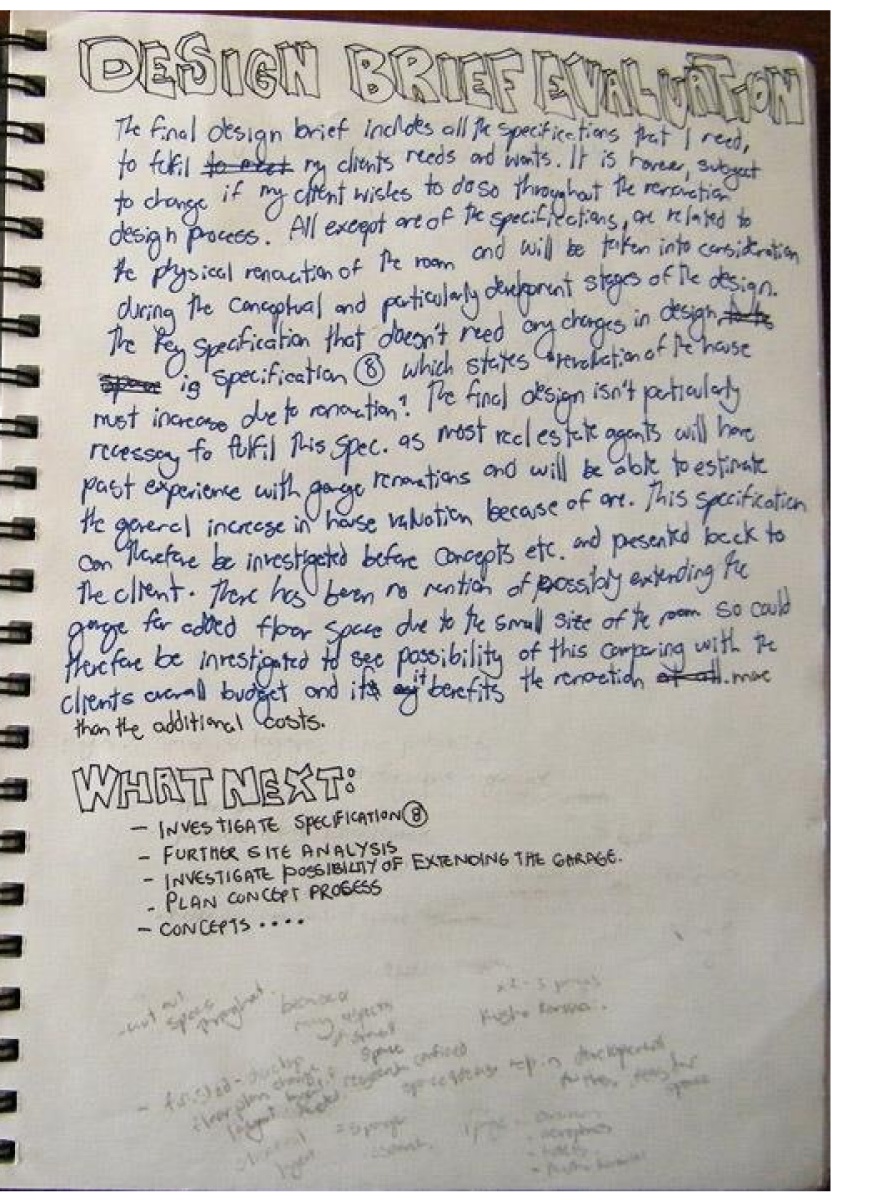 DESIGN BRIEF EVALUATION
The final design brief includes all the specifications that I need,
to fulfil to meet my clients needs and wants. It is however, subject
to change if my client wishes to do so throughout the renovation
design process. All except one of the specifications, are related to
the physical renovation of the room and will be taken into consideration
during the conceptual and particularly development stages of the design.
The key specification that doesn't need any changes in design
is specification ⑧ which states "revaluation of the house
must increase due to renovation". The final design isn't particularly
necessary to fulfil this spec. as most real estate agents will have
past experience with garage renovations and will be able to estimate
the general increase in house valuation because of one. This specification
can therefore be investigated before concepts etc. and presented back to
the client. There has been no mention of possibly extending the
garage for added floor space due to the small size of the room so could
therefore be investigated to see possibility of this comparing with the
clients overall budget and if it benefits the renovation of all more
than the additional costs.
WHAT NEXT:
- INVESTIGATE SPECIFICATION ⑧
- FURTHER SITE ANALYSIS
- INVESTIGATE POSSIBILITY OF EXTENDING THE GARAGE.
- PLAN CONCEPT PROCESS
- CONCEPTS ....